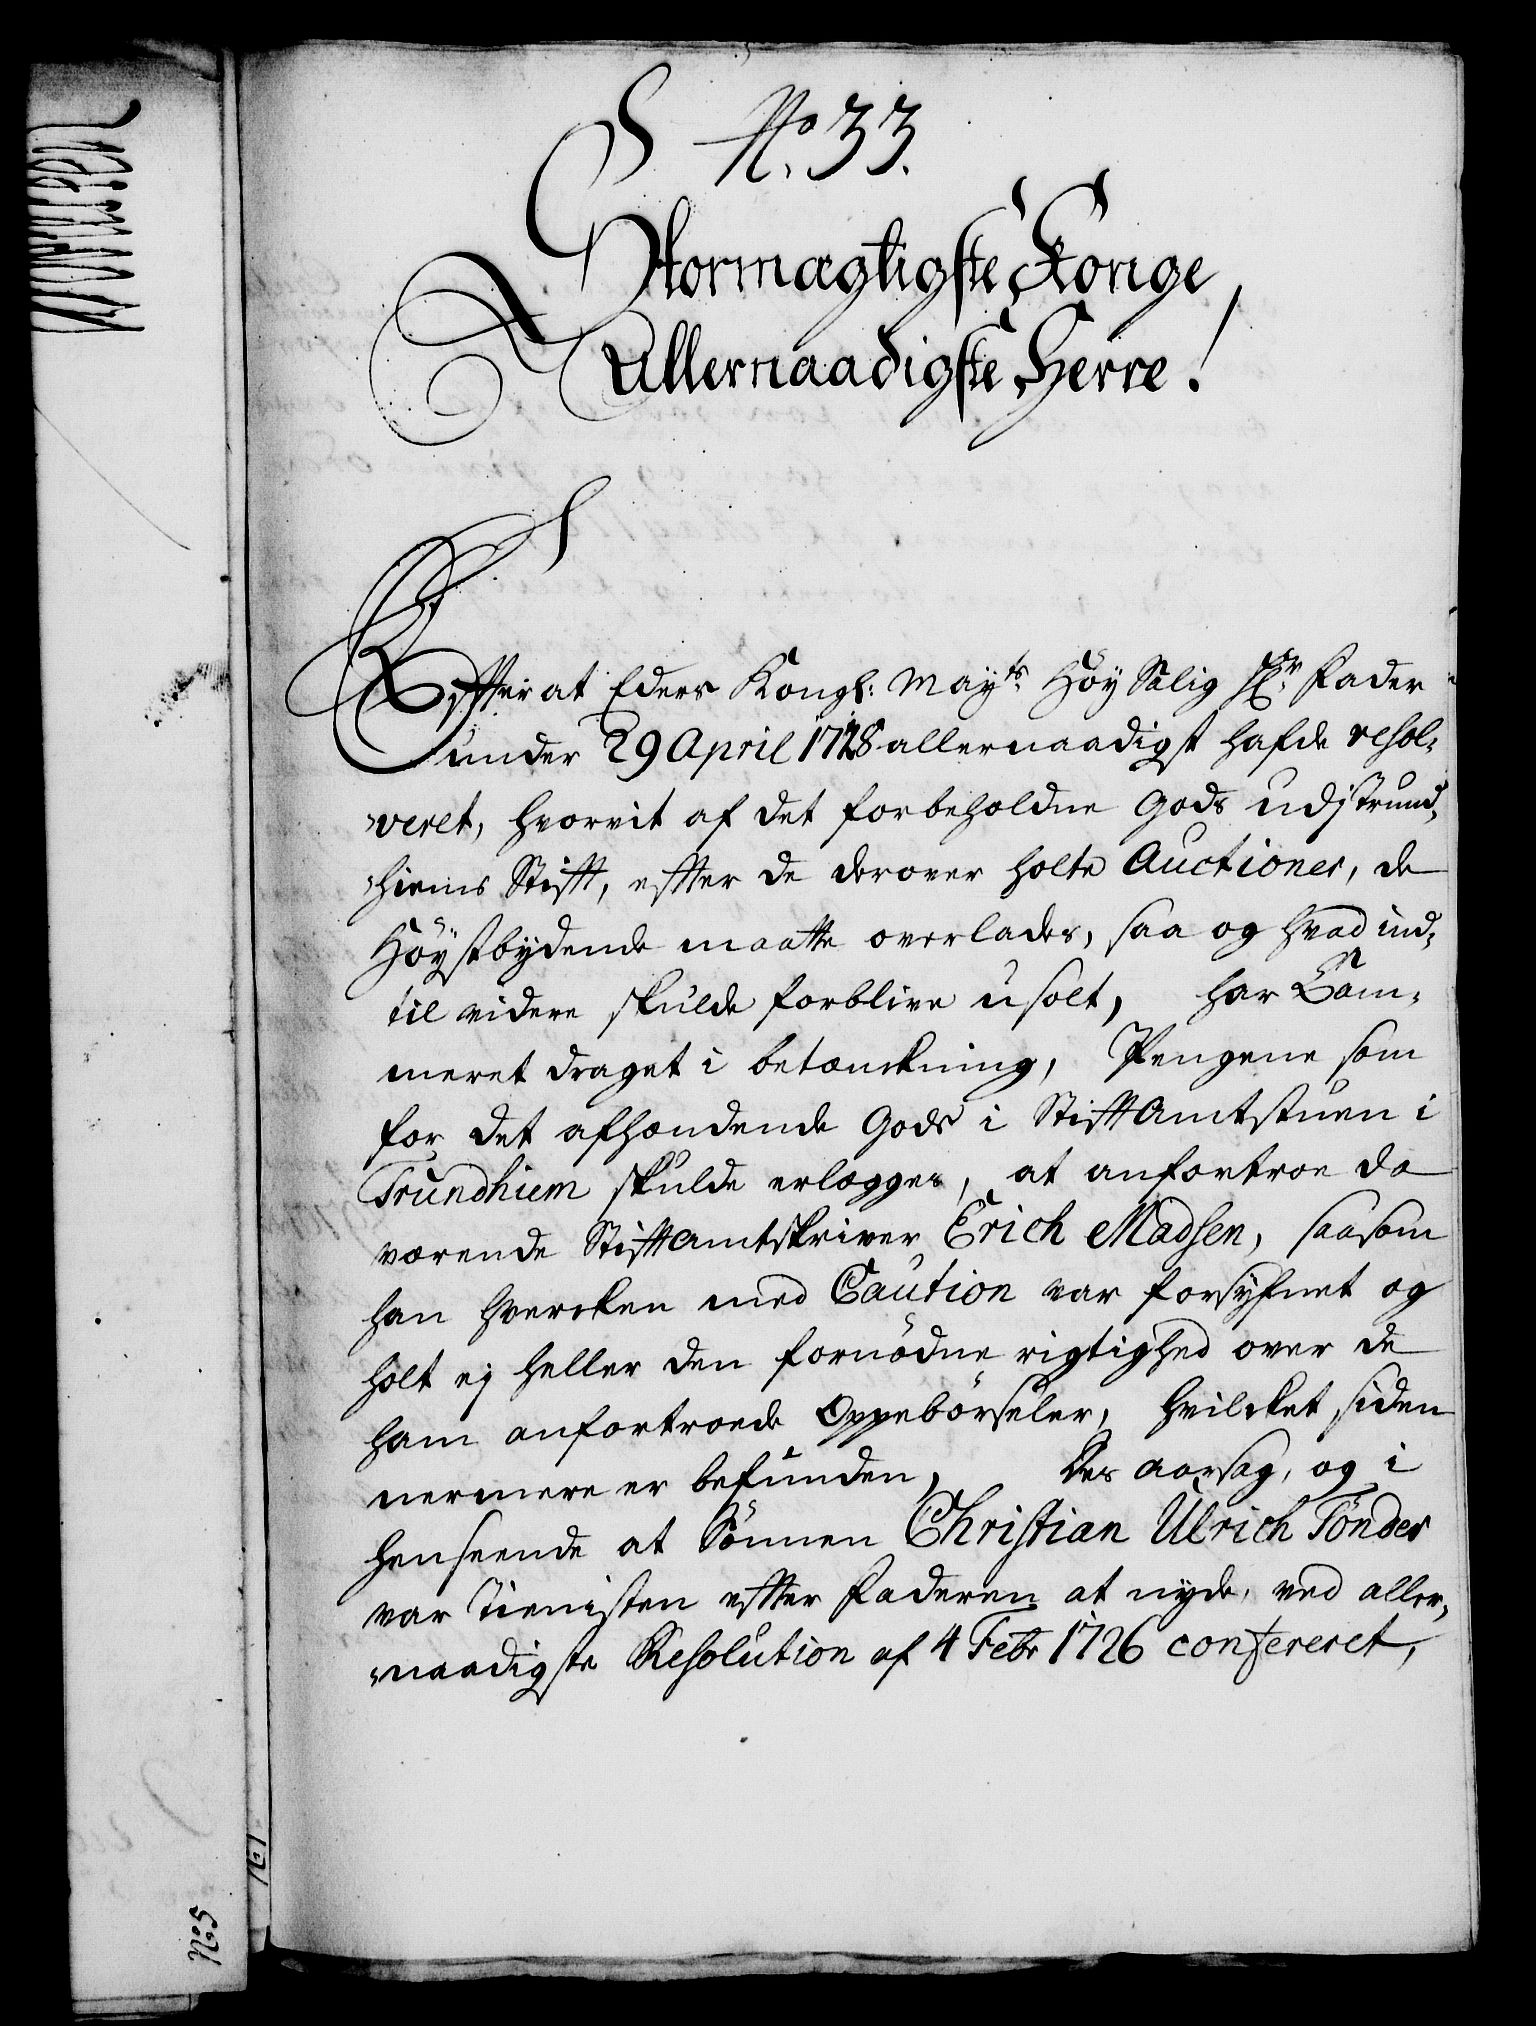 No. 33.
Stormægtigste Konge,
Allernaadigste Herre!
Effterat Eders Kongl: Mayts Höy Salig Hr Fader
under 29 April 1728 allernaadigst hafde resol-
veret, hvorvit af det forbeholdne Gods udj Trund-
hiems Stifft, effter de derover holte Auctioner, de
Höystbydende maatte overlades, saa og hvad ind-
til videre skulde forblive usolt, har Cam-
meret draget i betænckning, Pengene som
for det afhændende Gods i Stifftamtstuen i
Trundhiem skulde erlægges, at anfortroe da
værende Stifftamtskriver Erich Madsen, saasom
han hvercken med Caution var forsyfnet og
holt ej heller den fornödne rigtighed over de
ham anfortroede Oppebörseler, hvilcket siden
nermere er befunden, Des aarsag, og i
henseende at Sönnen Christian Ulrich Tönder
var Tienisten effter Faderen at nyde, ved aller-
naadigste Resolution af 4 Febr 1726 confereret,
161
No 5